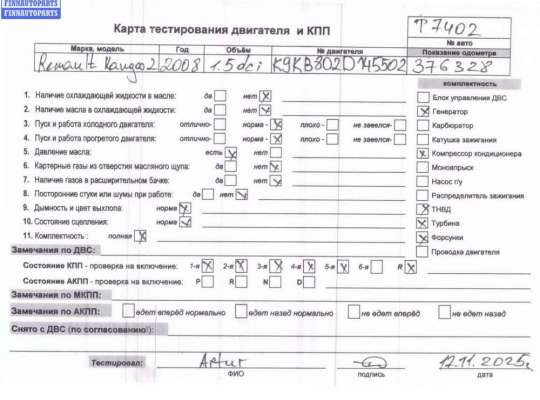 FINNAUTOPARTS
FINNAUTOPARTS
Карта тестирования двигателя и КПП
T 7402
№ авто
Марка, модель Год Объём № двигателя Показание одометра
Renault Kangoo 2 2008 1.5 dci K9KB802D145502 376328
комплектность
1. Наличие охлаждающей жидкости в масле: да нет X
2. Наличие масла в охлаждающей жидкости: да нет
3. Пуск и работа холодного двигателя: отлично- норма - X плохо - не завелся-
4. Пуск и работа прогретого двигателя: отлично- норма - X плохо - не завелся-
5. Давление масла: есть нет
6. Картерные газы из отверстия масляного щупа: да нет
7. Наличие газов в расширительном бачке: да нет
8. Посторонние стуки или шумы при работе: да нет
9. Дымность и цвет выхлопа: норма
10. Состояние сцепления: норма
11. Комплектность : полная X
Блок управления ДВС
Генератор
Карбюратор
Катушка зажигания
Компрессор кондиционера
Моновпрыск
Насос г/у
Распределитель зажигания
ТНВД
Турбина
Форсунки
Проводка двигателя
Замечания по ДВС:
Состояние КПП - проверка на включение: 1-я X 2-я X 3-я X 4-я X 5-я X 6-я R X
Состояние АКПП - проверка на включение: P R N D
Замечания по МКПП:
Замечания по АКПП: едет вперёд нормально едет назад нормально не едет вперёд не едет назад
Снято с ДВС (по согласованию):
Тестировал: Artur 17.11.2025г.
ФИО подпись дата